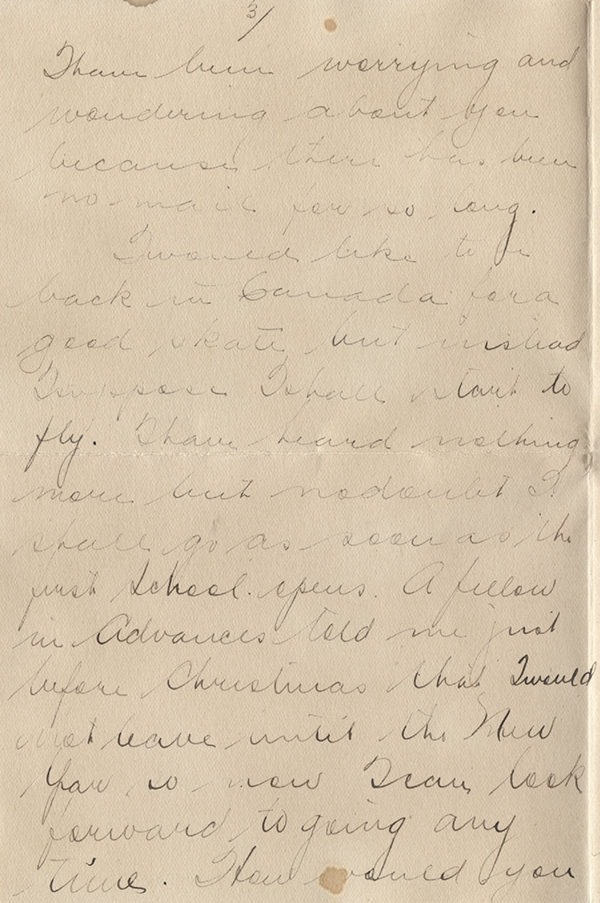 3/
I have been worrying and
wondering about you
because there has been
no mail for so long.
I would like to be
back in Canada for a
good skate but instead
I suppose I shall start to
fly. I have heard nothing
more but no doubt I
shall go as soon as the
first School opens. A fellow
in Advances told me just
before Christmas that I would
not leave until the New
Year so now I can look
forward to going any
time. How would you